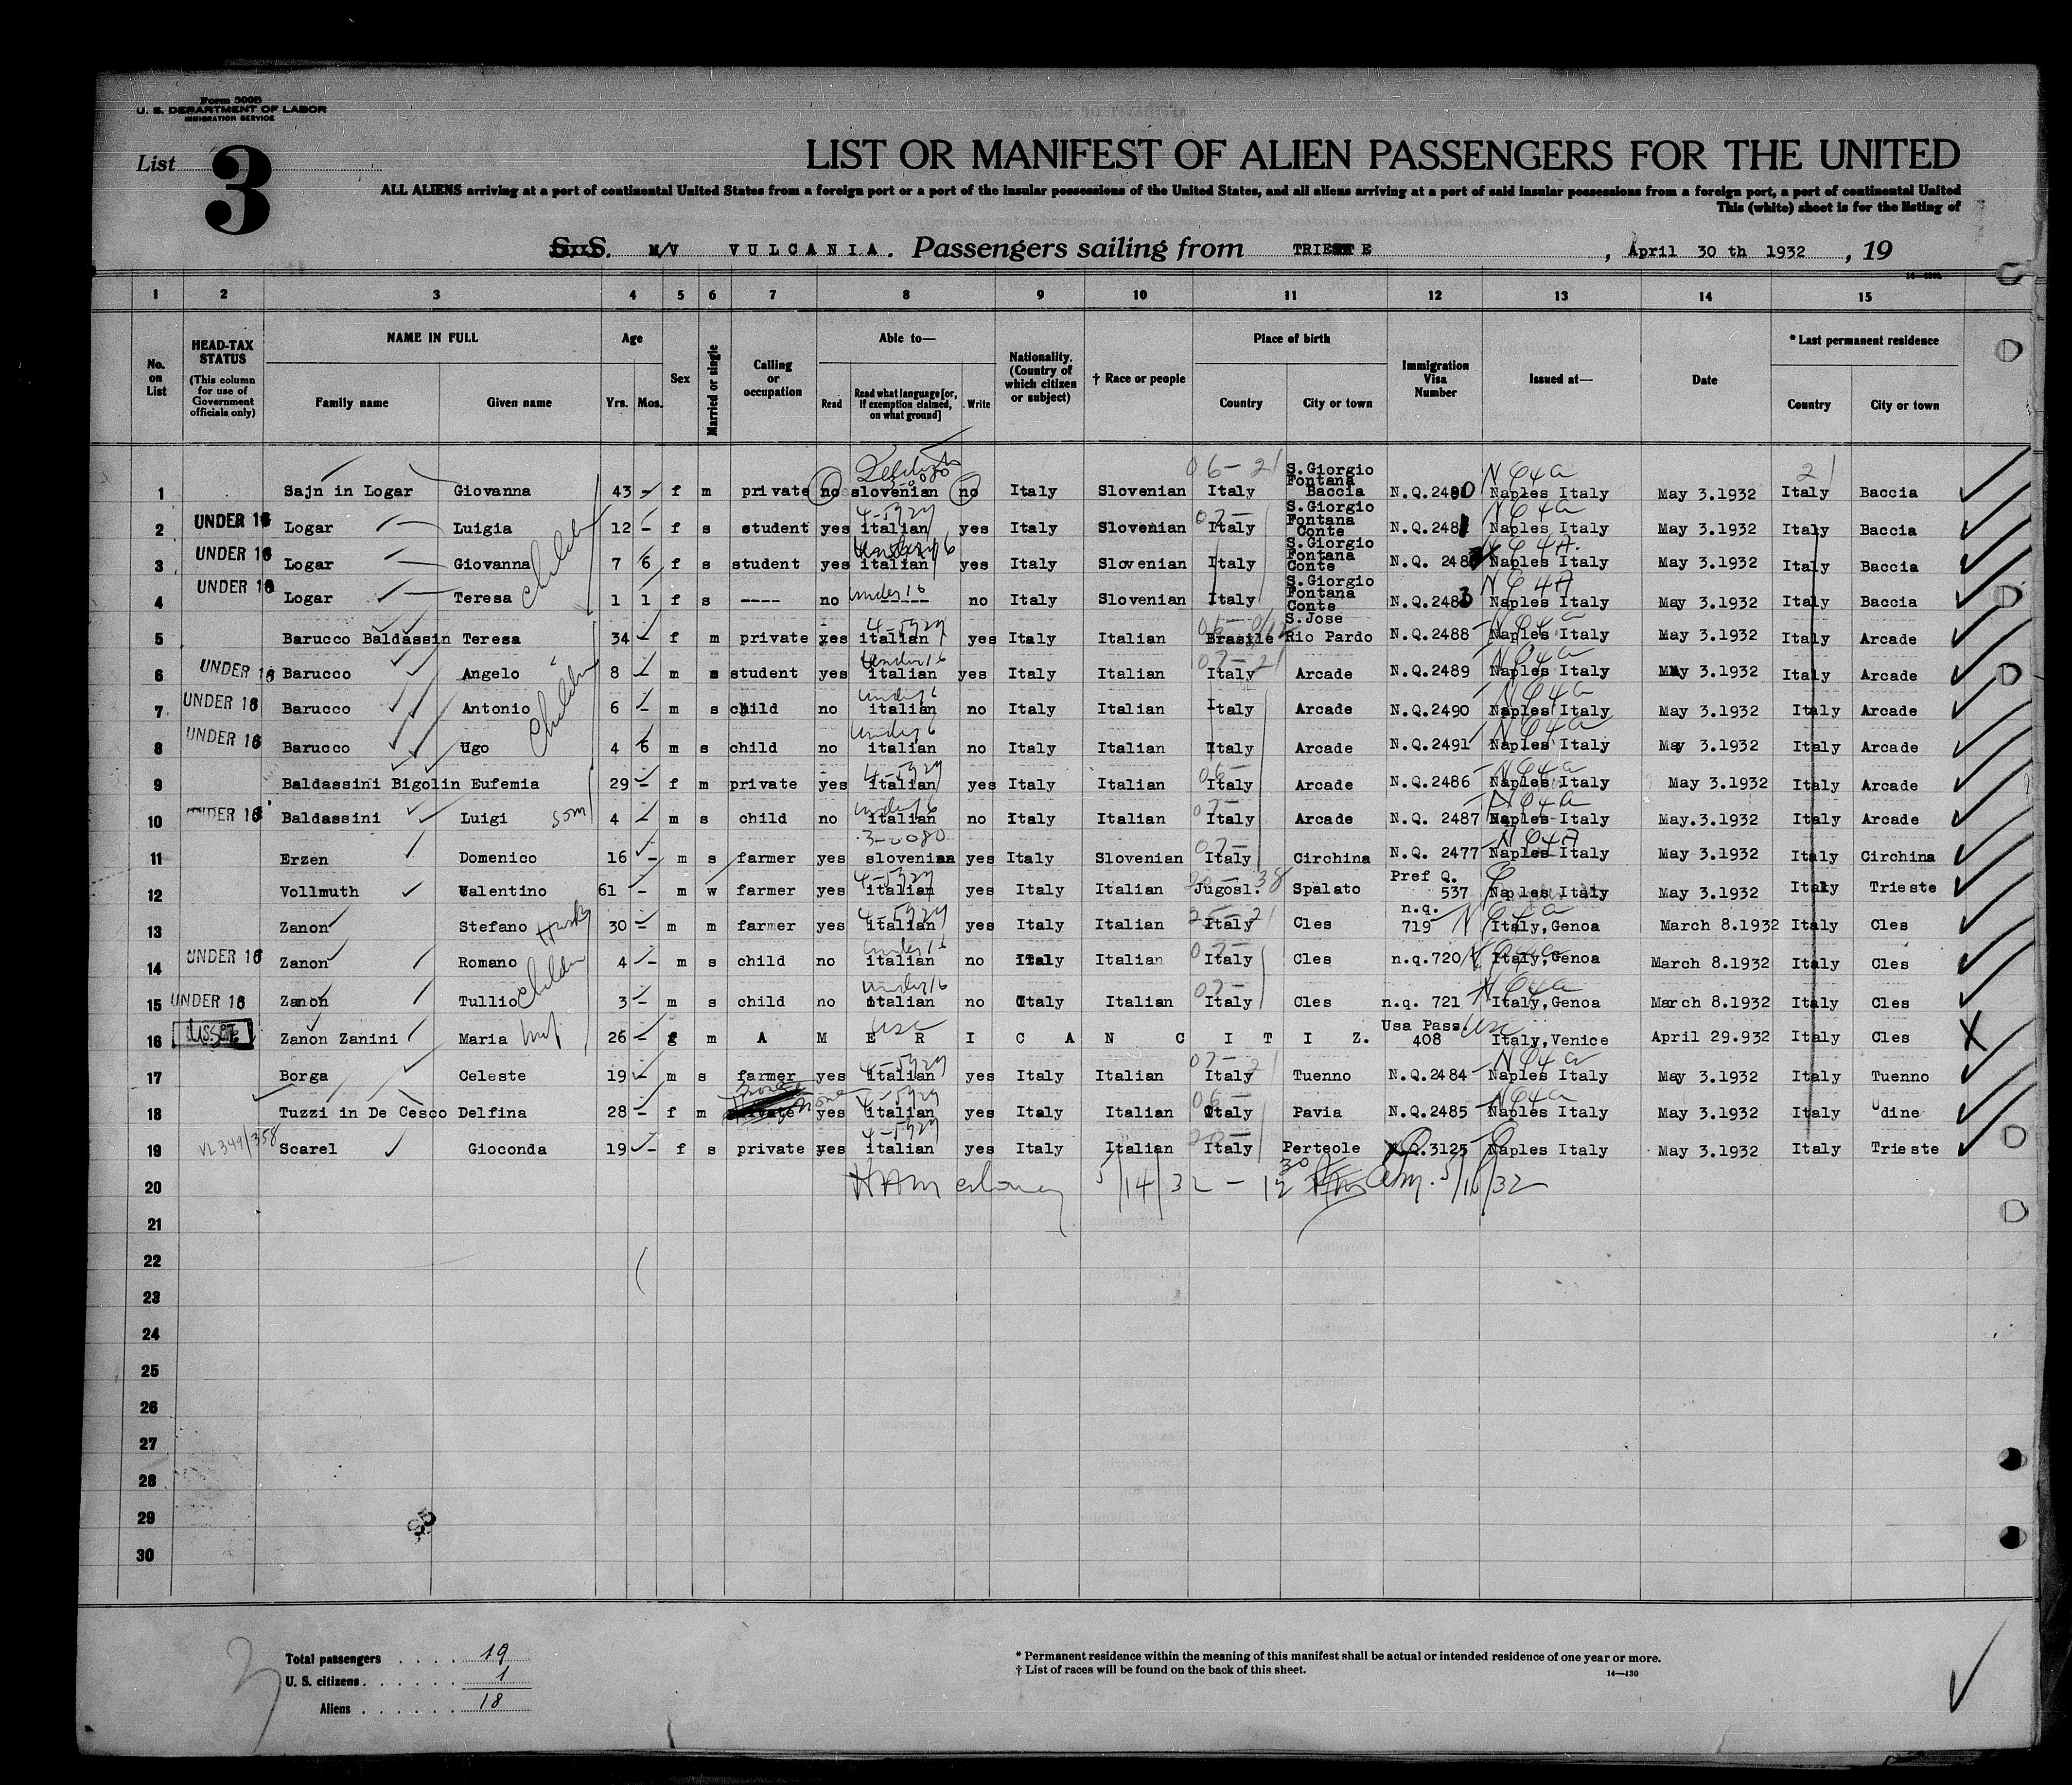 Form 500B
U. S. DEPARTMENT OF LABOR
IMMIGRATION SERVICE
List 3
LIST OR MANIFEST OF ALIEN PASSENGERS FOR THE UNITED
ALL ALIENS arriving at a port of continental United States from a foreign port or a port of the insular possessions of the United States, and all aliens arriving at a port of said insular possessions from a foreign port, a port of continental United
This (white) sheet is for the listing of
S.S. M/V VULCANIA. Passengers sailing from TRIESTE, April 30 th 1932, 19
1 2 3 4 5 6 7 8 9 10 11 12 13 14 15
No. on List
HEAD-TAX STATUS (This column for use of Government officials only)
NAME IN FULL
Family name Given name
Age
Yrs. Mos.
Sex
Married or single
Calling or occupation
Able to—
Read Read what language [or, if exemption claimed, on what ground] Write
Nationality. (Country of which citizen or subject)
† Race or people
Place of birth
Country City or town
Immigration Visa Number
Issued at—
Date
* Last permanent residence
Country City or town
1 Sajn in Logar Giovanna 43 - f m private no slovenian no Italy Slovenian Italy S.Giorgio Fontana Baccia N.Q.2480 Naples Italy May 3.1932 Italy Baccia
2 UNDER 16 Logar Luigia 12 - f s student yes italian yes Italy Slovenian Italy S.Giorgio Fontana Conte N.Q.2481 Naples Italy May 3.1932 Italy Baccia
3 UNDER 16 Logar Giovanna children 7 6 f s student yes italian yes Italy Slovenian Italy S.Giorgio Fontana Conte N.Q. 248 Naples Italy May 3.1932 Italy Baccia
4 UNDER 16 Logar Teresa 1 1 f s ---- no under 16 ----- no Italy Slovenian Italy S.Giorgio Fontana Conte N.Q.2483 Naples Italy May 3.1932 Italy Baccia
5 Barucco Baldassin Teresa 34 - f m private yes italian yes Italy Italian Brasile S.Jose Rio Pardo N.Q.2488 Naples Italy May 3.1932 Italy Arcade
6 UNDER 16 Barucco Angelo 8 - m s student yes under 16 italian yes Italy Italian Italy Arcade N.Q.2489 Naples Italy May 3.1932 Italy Arcade
7 UNDER 16 Barucco Antonio children 6 - m s child no under 16 italian no Italy Italian Italy Arcade N.Q.2490 Naples Italy May 3.1932 Italy Arcade
8 UNDER 16 Barucco Ugo 4 6 m s child no under 16 italian no Italy Italian Italy Arcade N.Q.2491 Naples Italy May 3.1932 Italy Arcade
9 Baldassini Bigolin Eufemia 29 - f m private yes italian yes Italy Italian Italy Arcade N.Q.2486 Naples Italy May 3.1932 Italy Arcade
10 UNDER 16 Baldassini Luigi son 4 - m s child no under 16 italian no Italy Italian Italy Arcade N.Q. 2487 Naples Italy May.3.1932 Italy Arcade
11 Erzen Domenico 16 - m s farmer yes slovenian yes Italy Slovenian Italy Circhina N.Q. 2477 Naples Italy May 3.1932 Italy Circhina
12 Vollmuth Valentino 61 - m w farmer yes italian yes Italy Italian Jugosl. Spalato Pref Q. 537 Naples Italy May 3.1932 Italy Trieste
13 Zanon Stefano 30 - m m farmer yes italian yes Italy Italian Italy Cles n.q. 719 Italy,Genoa March 8.1932 Italy Cles
14 UNDER 16 Zanon Romano 4 - m s child no under 16 italian no Italy Italian Italy Cles n.q.720 Italy,Genoa March 8.1932 Italy Cles
15 UNDER 16 Zanon Tullio children 3 - m s child no under 16 italian no Italy Italian Italy Cles n.q. 721 Italy,Genoa March 8.1932 Italy Cles
16 Zanon Zanini Maria 26 - f m A M E R I C A N C I T I Z. Usa Pass. 408 Italy,Venice April 29.932 Italy Cles
17 Borga Celeste 19 - m s farmer yes italian yes Italy Italian Italy Tuenno N.Q.2484 Naples Italy May 3.1932 Italy Tuenno
18 Tuzzi in De Cesco Delfina 28 - f m private none yes italian yes Italy Italian Italy Pavia N.Q.2485 Naples Italy May 3.1932 Italy Udine
19 Scarel Gioconda 19 - f s private yes italian yes Italy Italian Italy Perteole N.Q.3125 Naples Italy May 3.1932 Italy Trieste
20 5/14/32 - 12 30 5/16/32
21
22
23
24
25
26
27
28
29
30
Total passengers . . . . 19
U. S. citizens . . . . . . 1
Aliens . . . . . . 18
* Permanent residence within the meaning of this manifest shall be actual or intended residence of one year or more.
† List of races will be found on the back of this sheet.
14—430